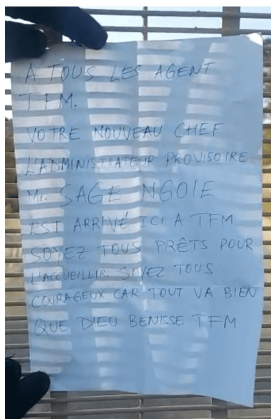 A TOUS LES AGENT
TFM.
VOTRE NOUVEAU CHEF
L'ADMINISTRATEUR PROVISOIRE
Mr. SAGE NGOIE
EST ARRIVÉ ICI A TFM
SOYEZ TOUS PRÊTS POUR
L'ACCUEILLIR SOYEZ TOUS
COURAGEUX CAR TOUT VA BIEN
QUE DIEU BENISSE TFM